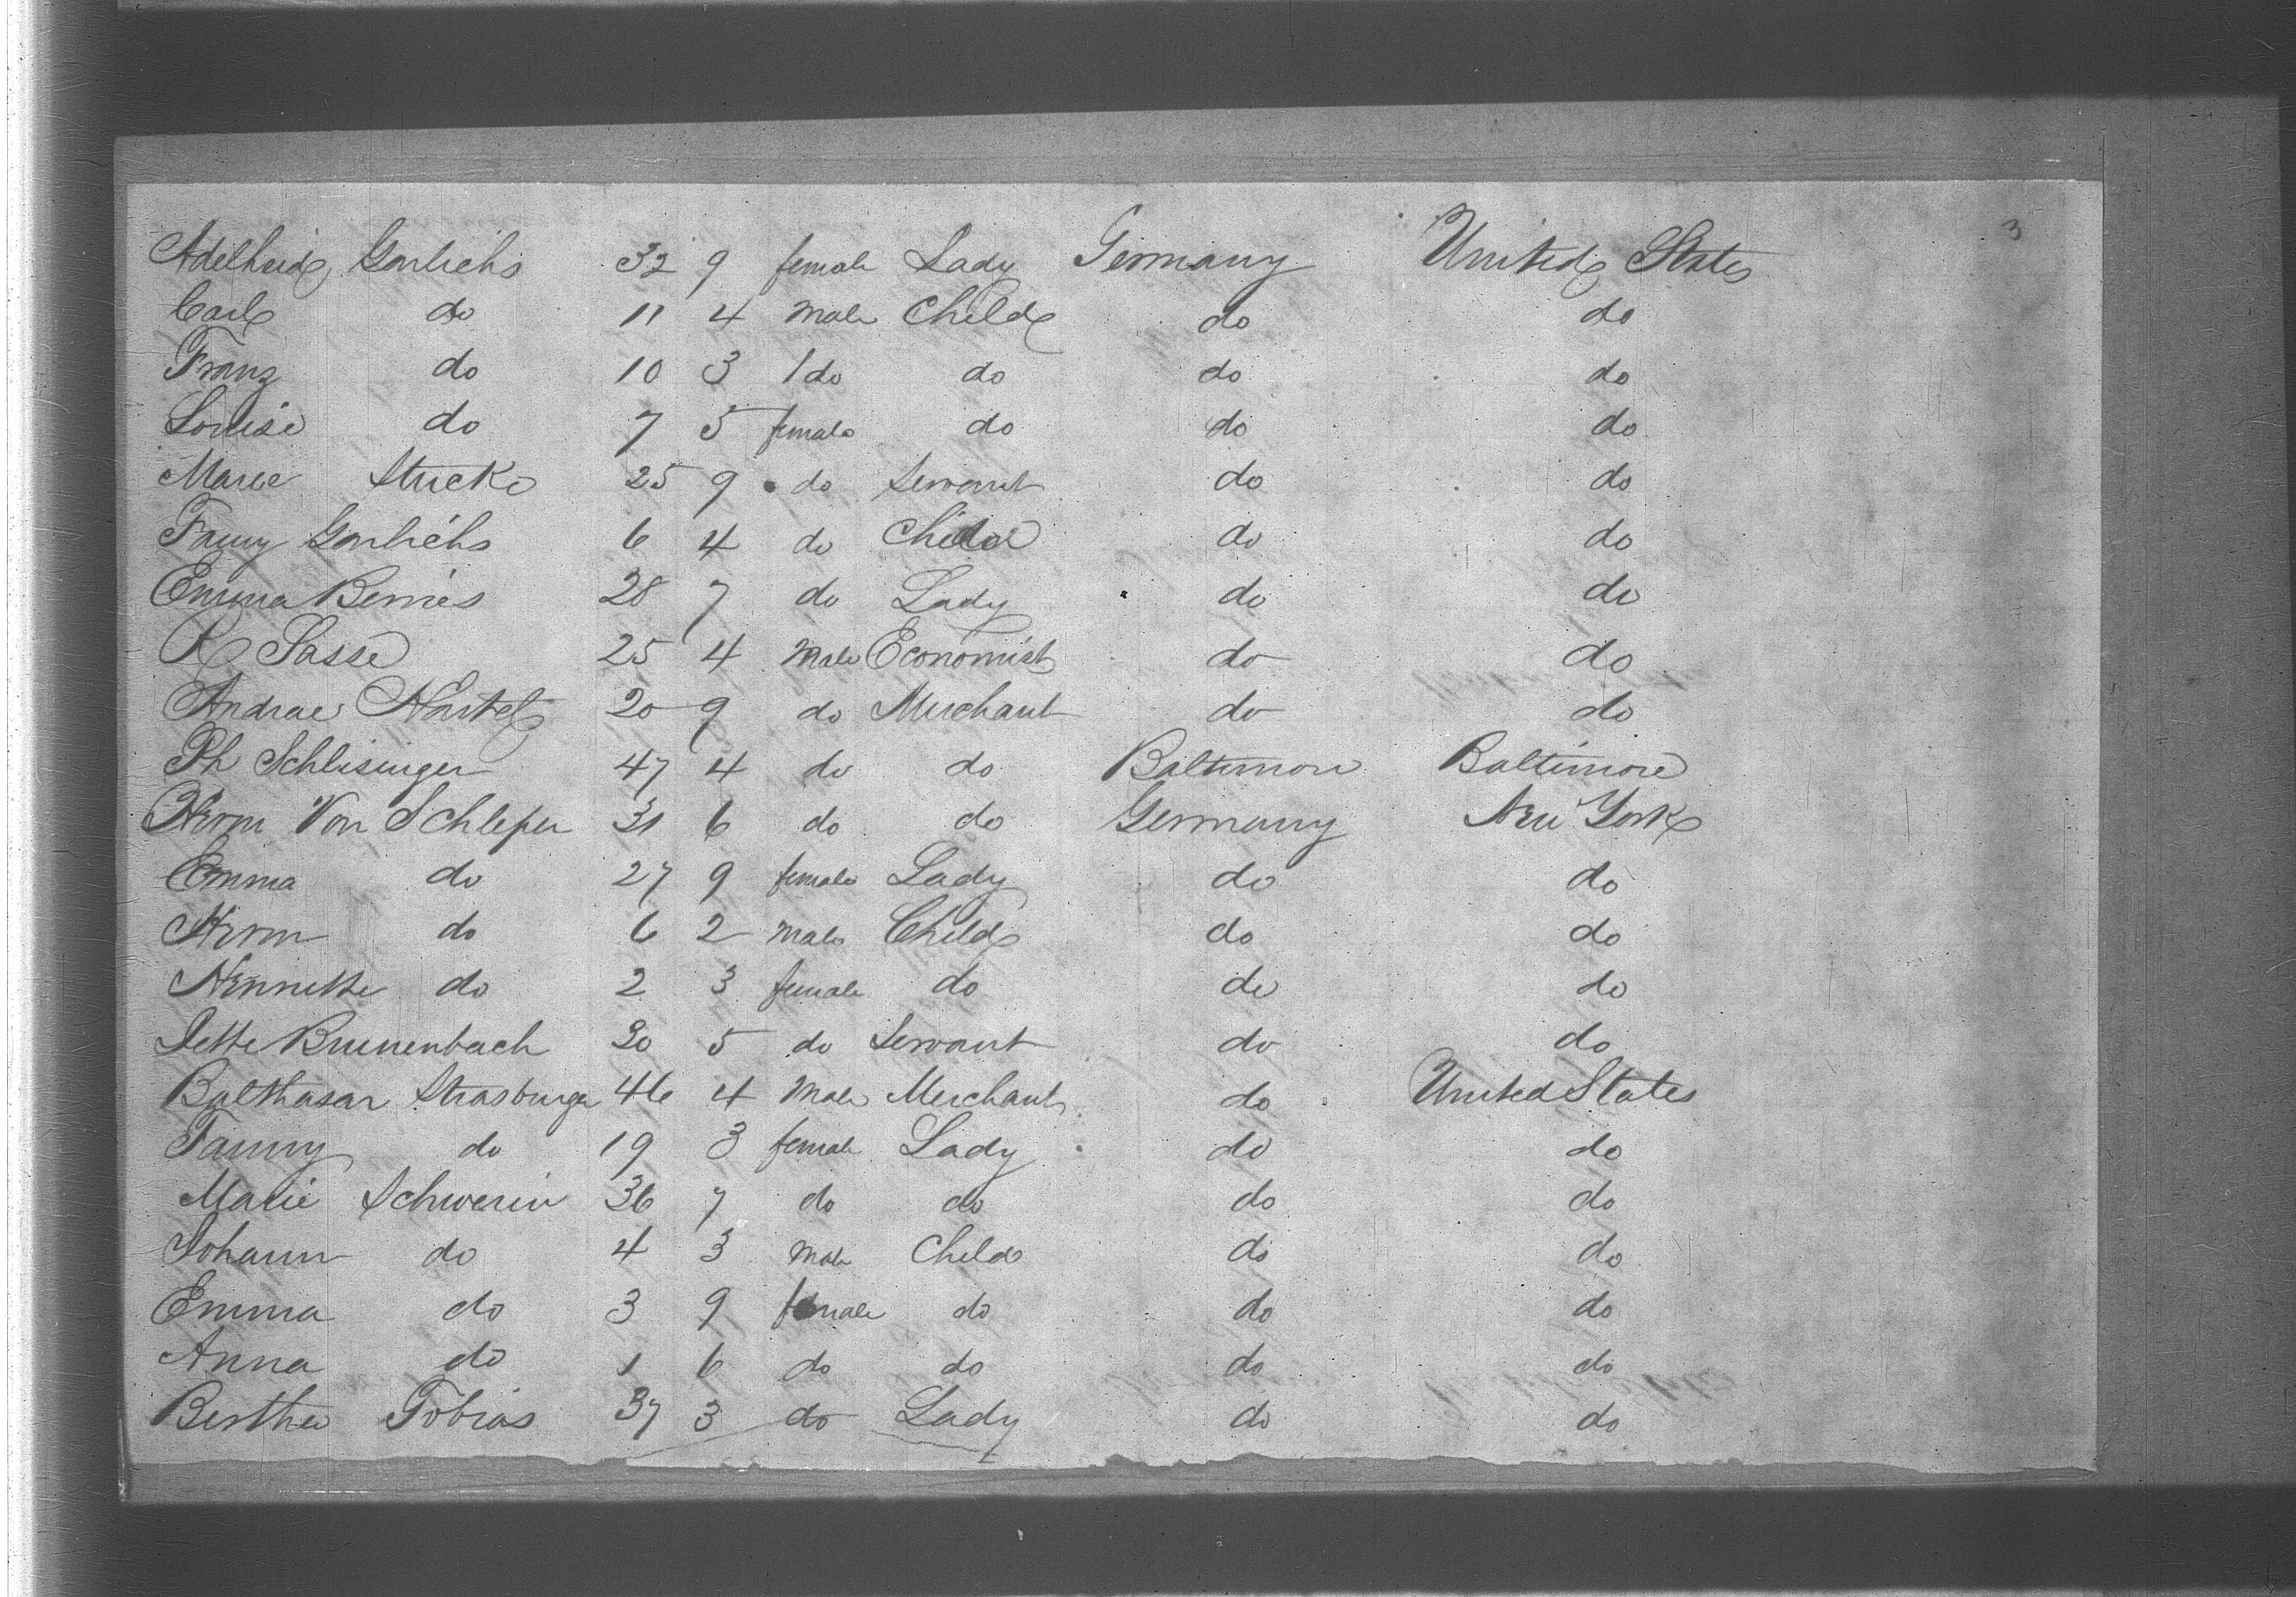 3
Adelheid Gorlichs 32 9 female Lady Germany United States
Carl do 11 4 male Child do do
Franz do 10 3 do do do do
Louise do 7 5 female do do do
Marie Strecke 25 9 do Servant do do
Fanny Gorlichs 6 4 do Child do do
Emma Bernes 28 7 do Lady do do
R Sasse 25 4 male Economist do do
Andrae Hartel 20 9 do Merchant do do
Ph Schlisinger 47 4 do do Baltimore Baltimore
Herm Von Schlepen 31 6 do do Germany New York
Emma do 27 9 female Lady do do
Herm do 6 2 male Child do do
Hennette do 2 3 female do do do
Jette Bruenenbach 20 5 do Servant do do
Balthasar Strasburger 46 4 male Merchant do United States
Fanny do 19 3 female Lady do do
Marie Schwerin 36 7 do do do do
Johann do 4 3 male Child do do
Emma do 3 9 female do do do
Anna do 1 6 do do do do
Berthe Tobias 37 3 do Lady do do